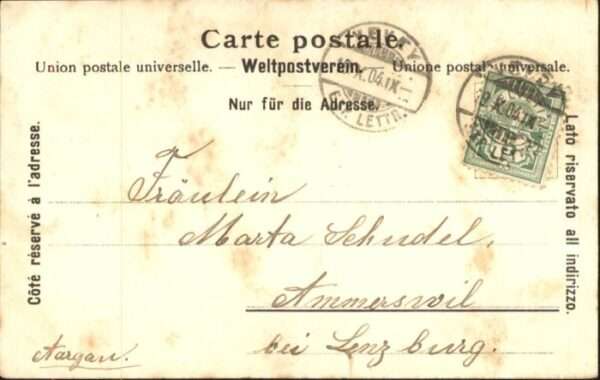 Carte postale.
Union postale universelle. — Weltpostverein. — Unione postale universale.
Nur für die Adresse.
Côté réservé à l'adresse.
Lato riservato all indirizzo.
LETTR.
Fräulein
Marta Schudel.
Ammerswil
bei Lenzburg.
Aargau.